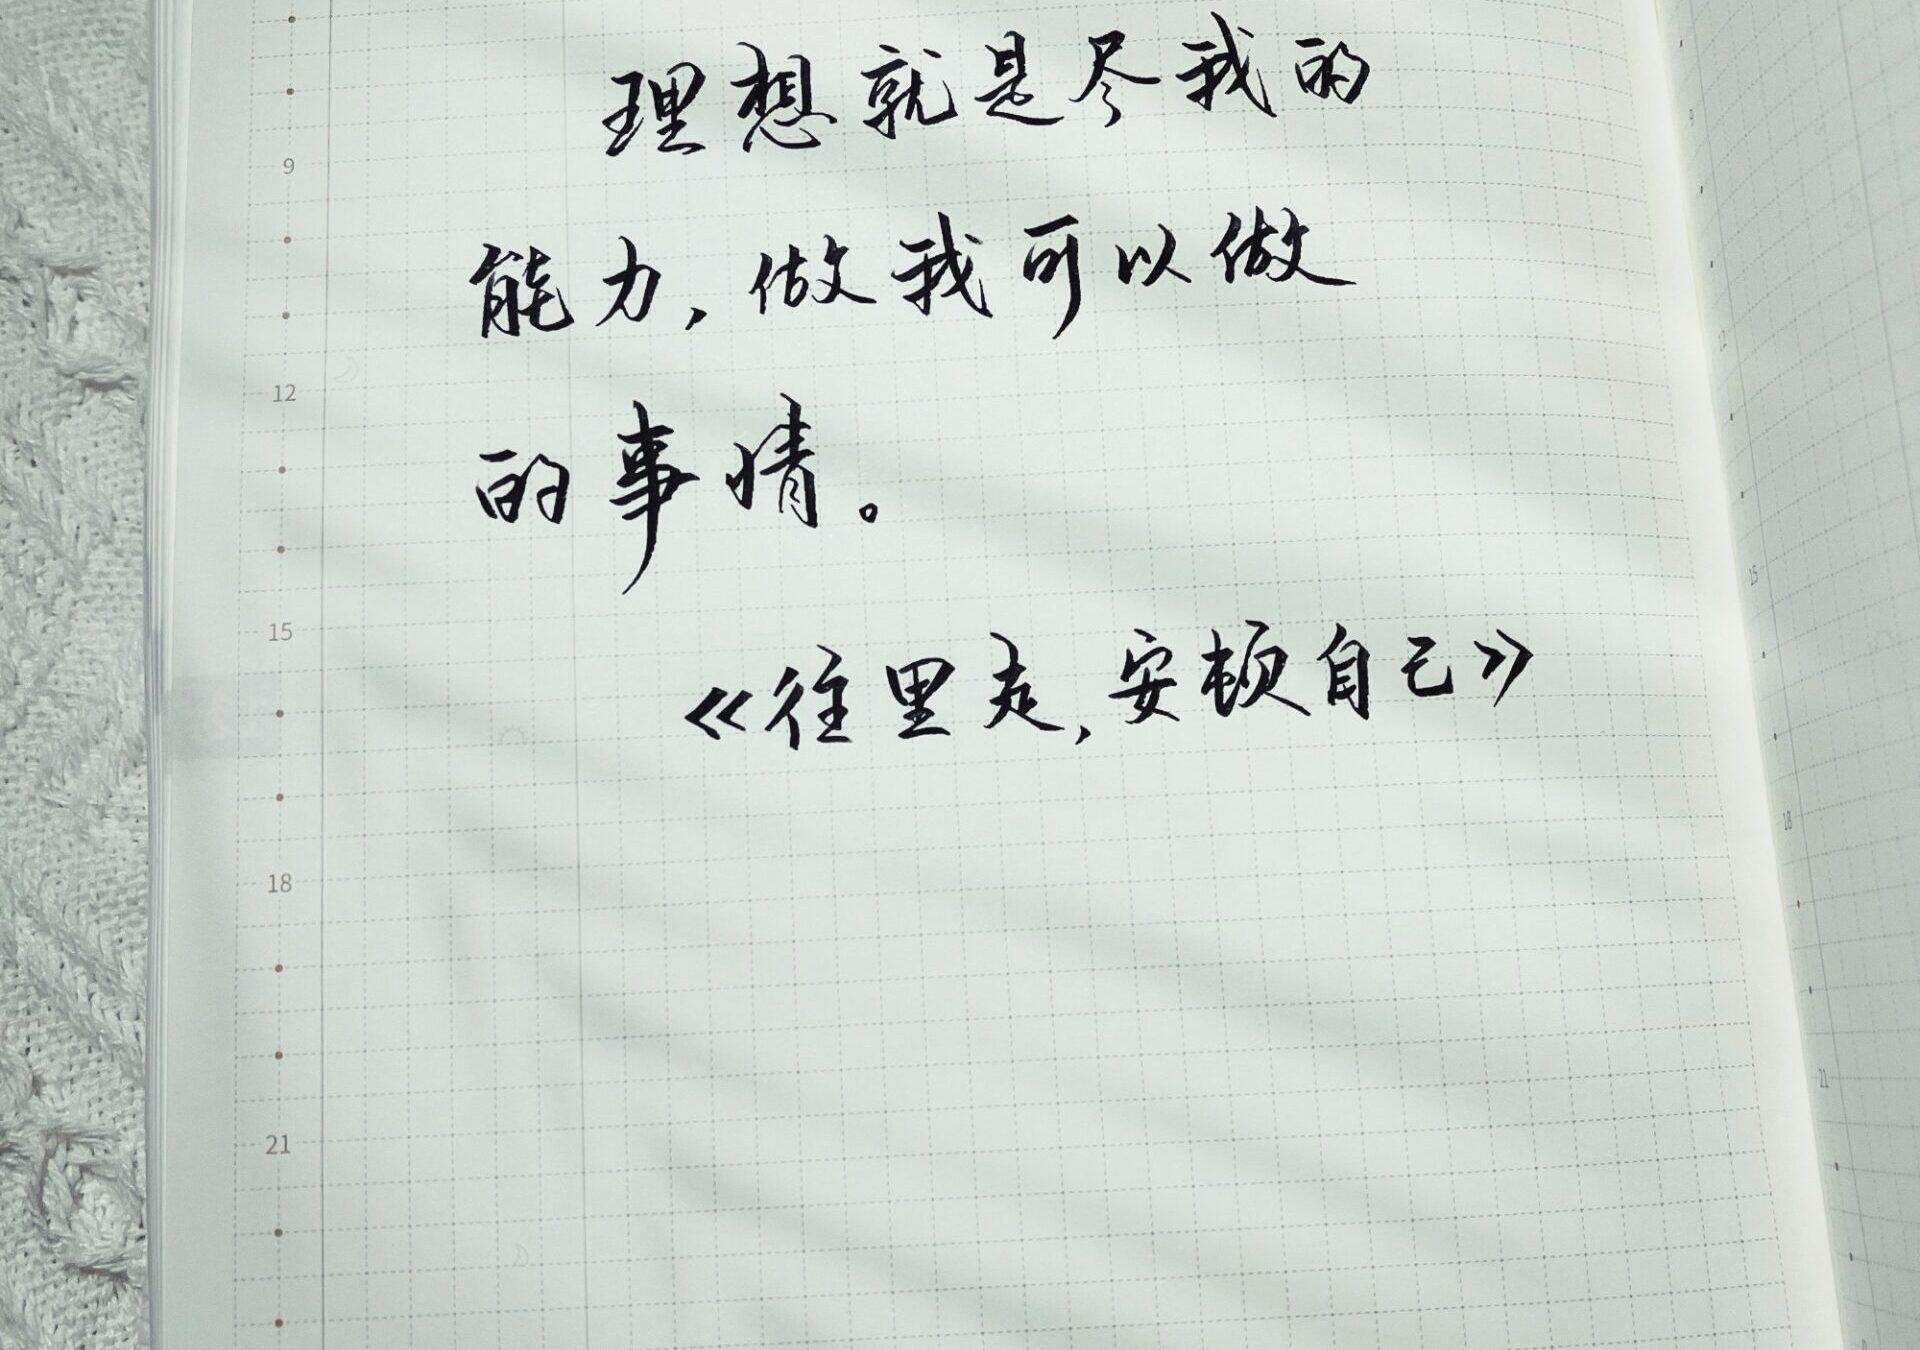 理想就是尽我的
9
能力,做我可以做
12
的事情。
15
《往里走,安顿自己》
18
21
15
18
21